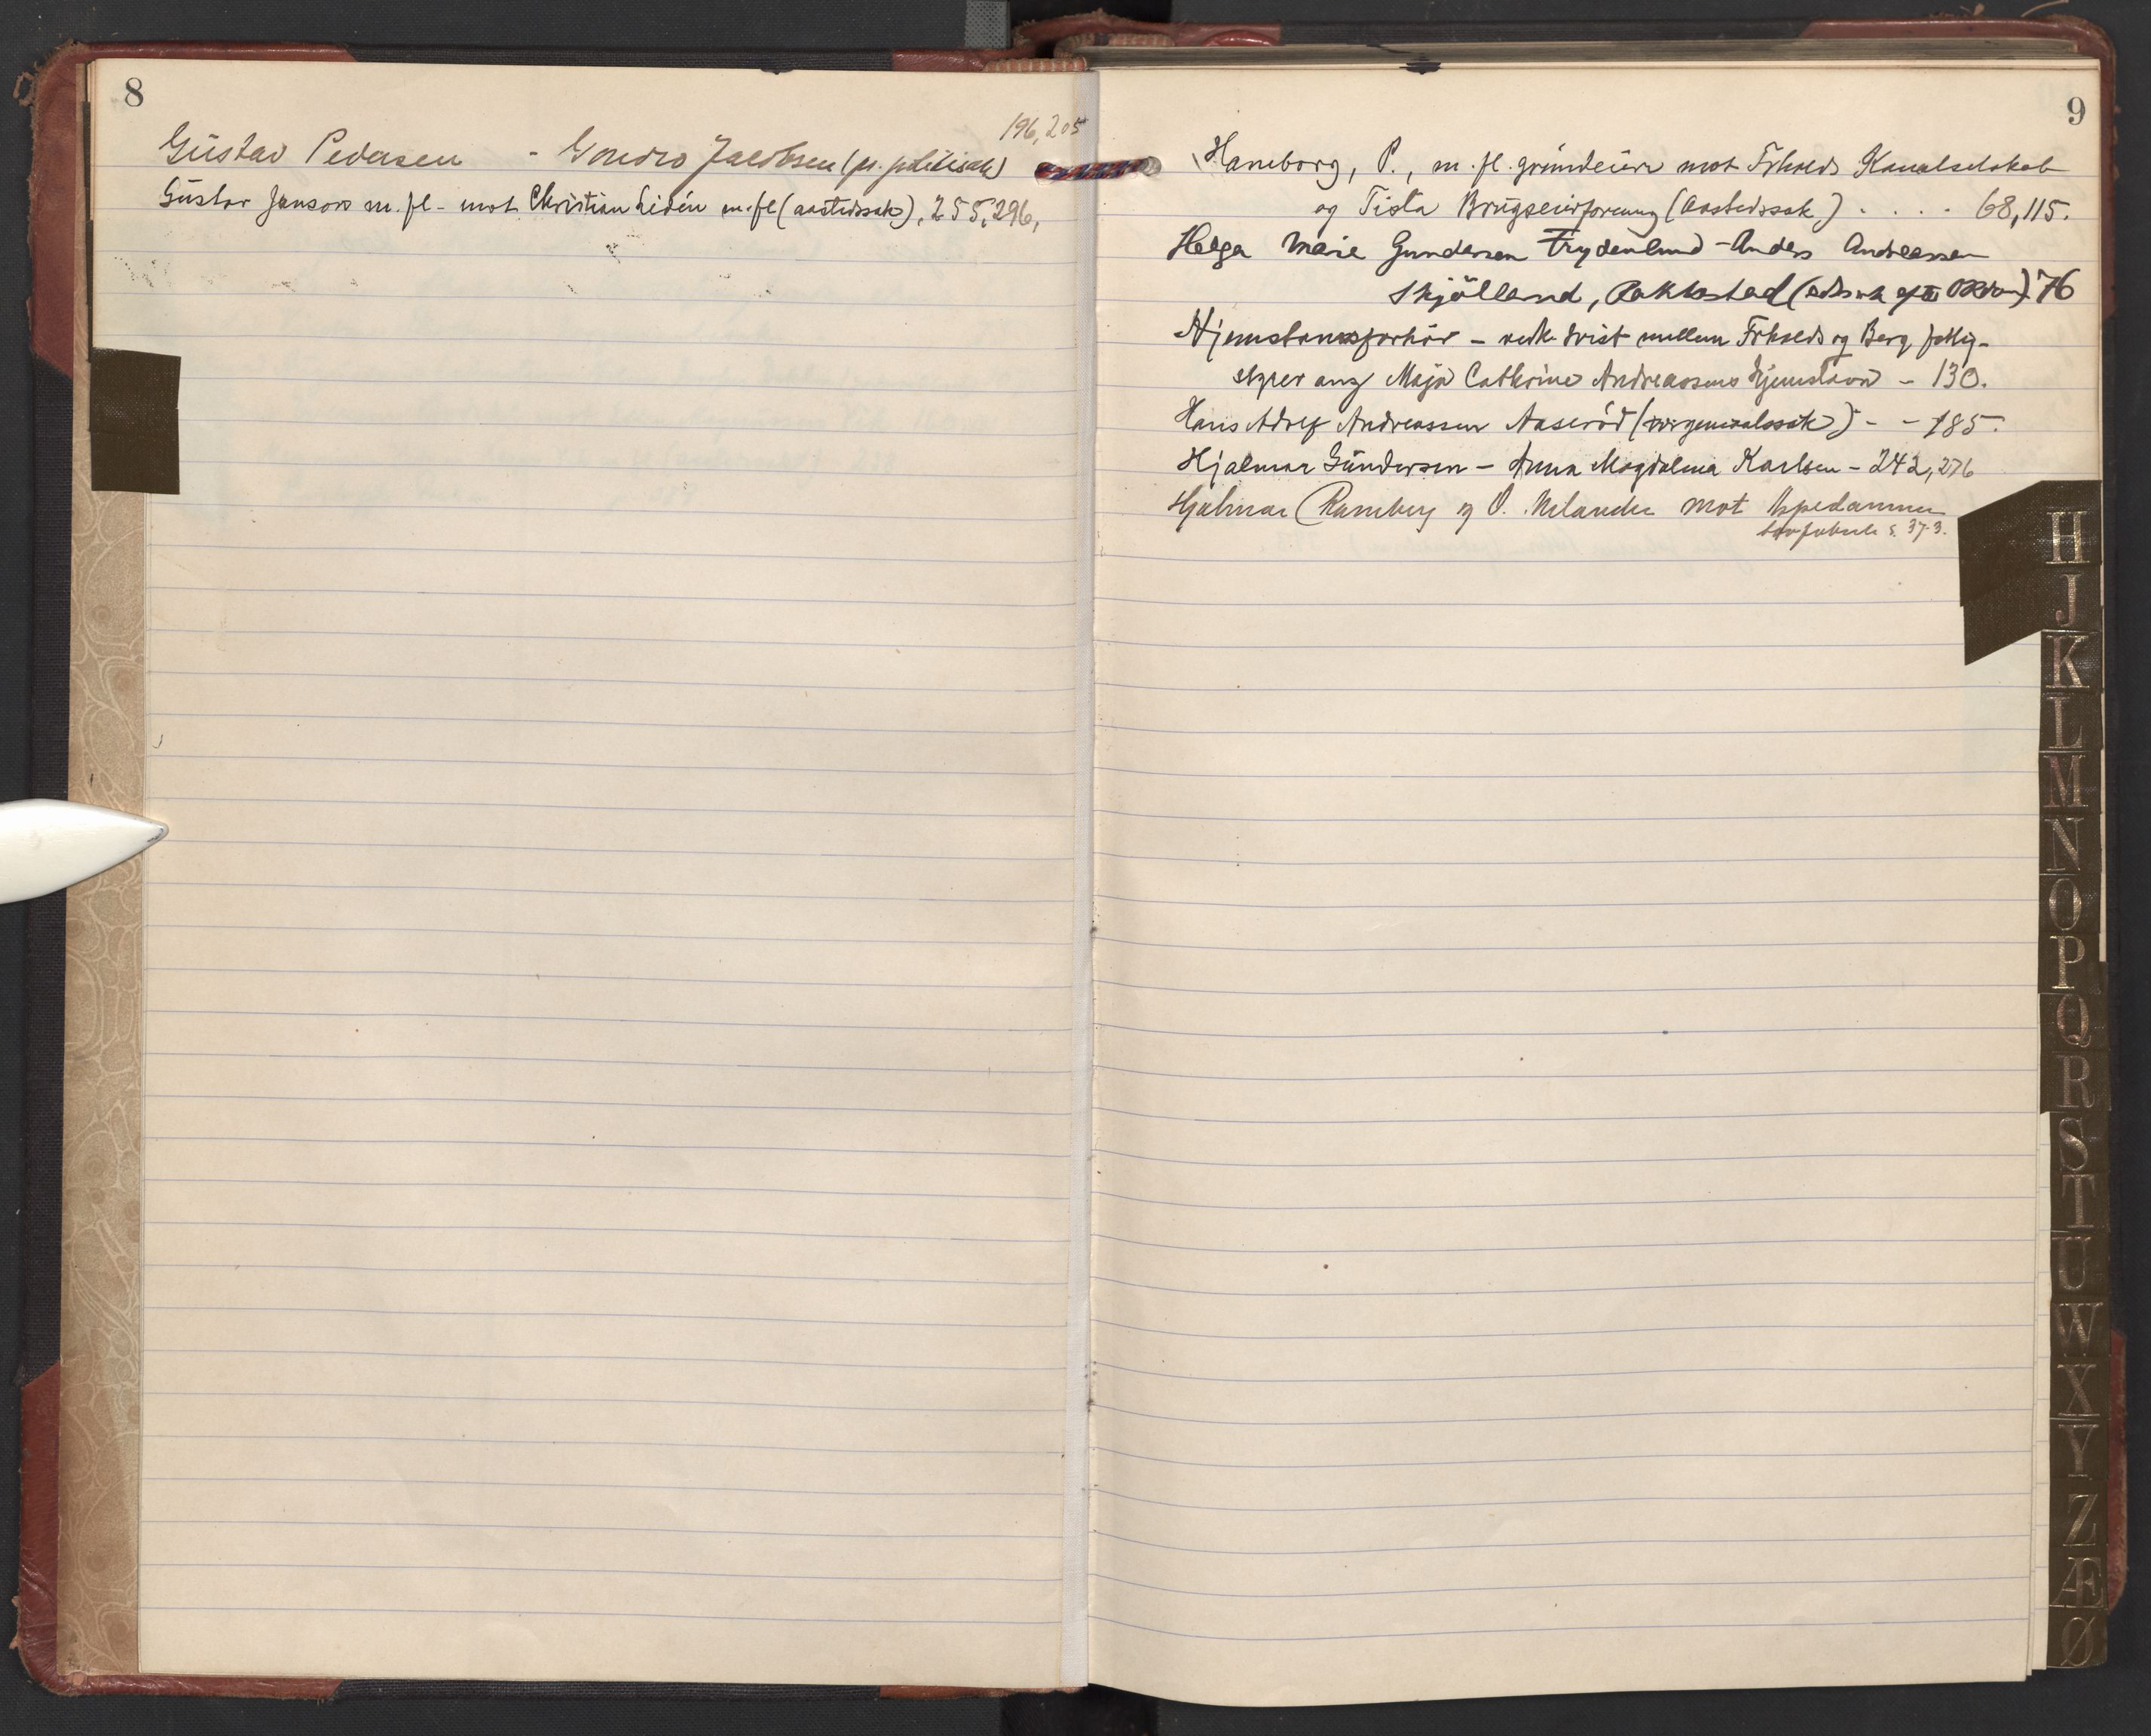 8
196, 205
Gustav Pedersen - Jacobsen (pr. politisak)
Gustav Janson m. fl - mot Christian Lidén m. fl (aastedssak), 255, 296,
9
Haneborg, P., m. fl. grundeiere mot Frhalds Kanalselskab
og Tista Brugseierforening (aastedssak) . . . . 68, 115.
Helga Marie Gundersen Frydenlund - Anders Andreassen
Skjölland, Rakkestad 76
Hjemstavnsforhör - vedk. tvist mellem Frhalds og Berg fattig-
ang Maja Cathrine Andreassens hjemstavn - 130.
Hans Adolf Andreassen Aaseröd - - 185.
Hjalmar Gundersen - Anna Magdalena Karlsen - 242, 276
Hjalmar Ramberg og O. Melander mot Aspedammen
s. 373.
H
J
K
L
M
N
O
P
Q
R
S
T
U
W
X
Y
Z
Æ
Ø